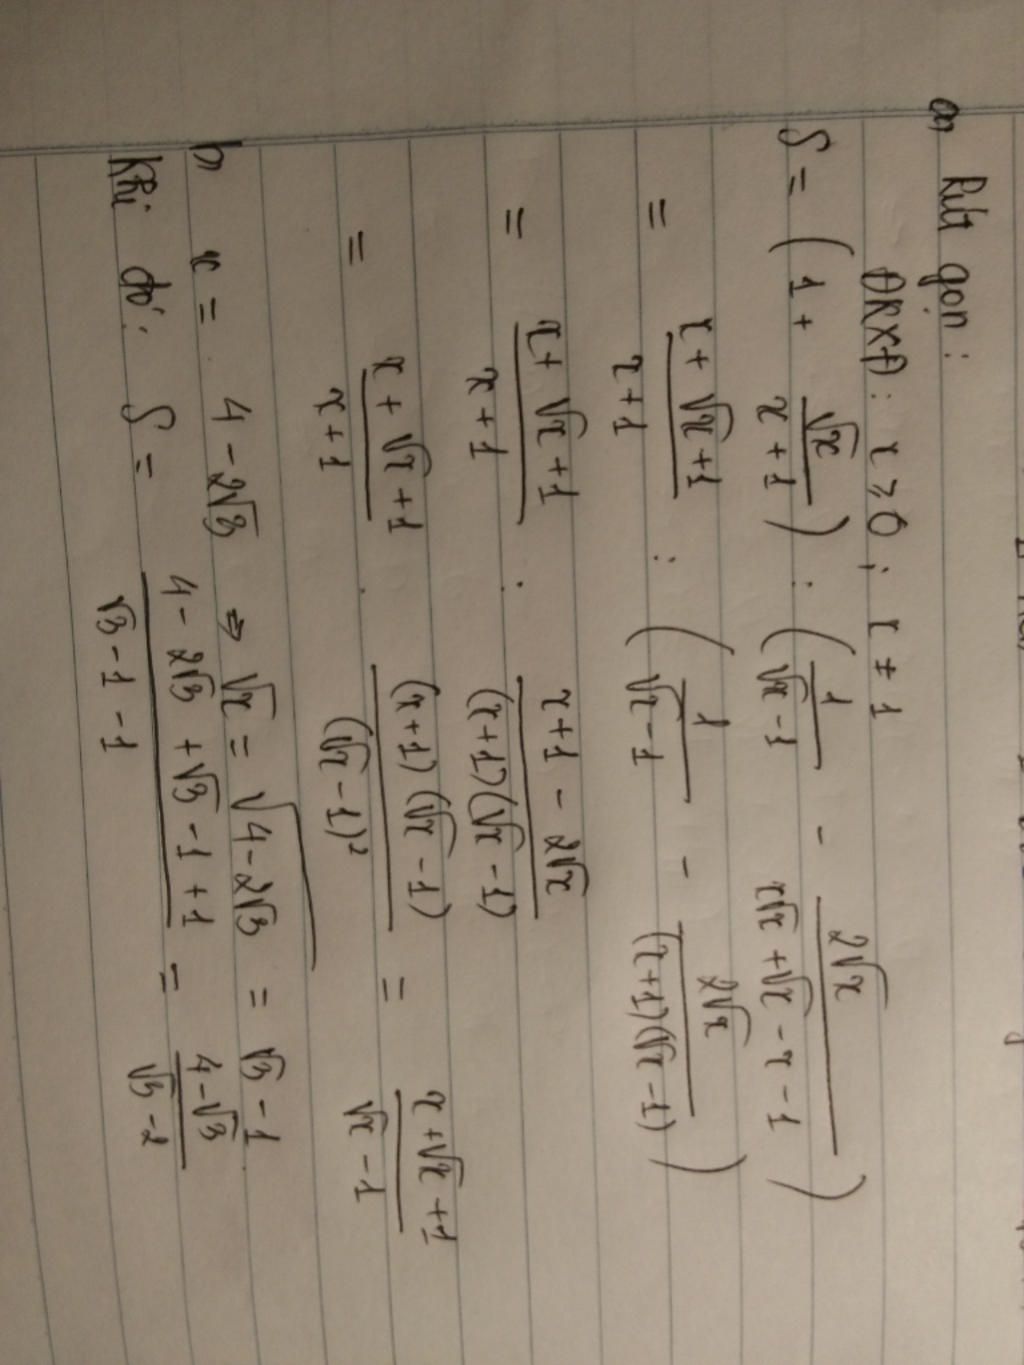 a, Rút gọn:
ĐKXĐ: x ≥ 0 ; x ≠ 1
S = ( 1 + √x / (x + 1) ) : ( 1 / (√x - 1) - 2√x / (x√x + √x - x - 1) )
= (x + √x + 1) / (x + 1) : ( 1 / (√x - 1) - 2√x / ((x+1)(√x - 1)) )
= (x + √x + 1) / (x + 1) : (x + 1 - 2√x) / ((x+1)(√x - 1))
= (x + √x + 1) / (x + 1) . (x+1)(√x - 1) / (√x - 1)² = (x + √x + 1) / (√x - 1)
b, x = 4 - 2√3 ⇒ √x = √(4 - 2√3) = √3 - 1
Khi đó: S = (4 - 2√3 + √3 - 1 + 1) / (√3 - 1 - 1) = (4 - √3) / (√3 - 2)